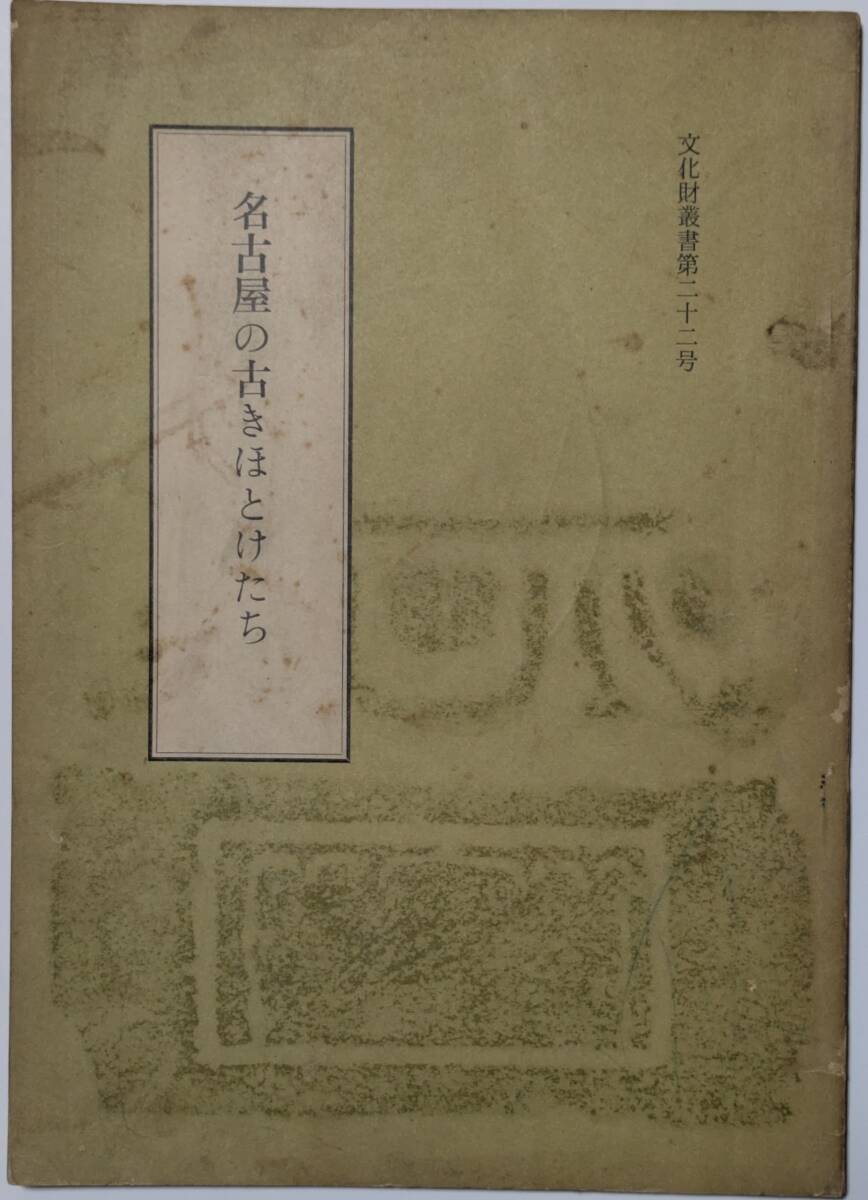 文化財叢書第二十二号
名古屋の古きほとけたち